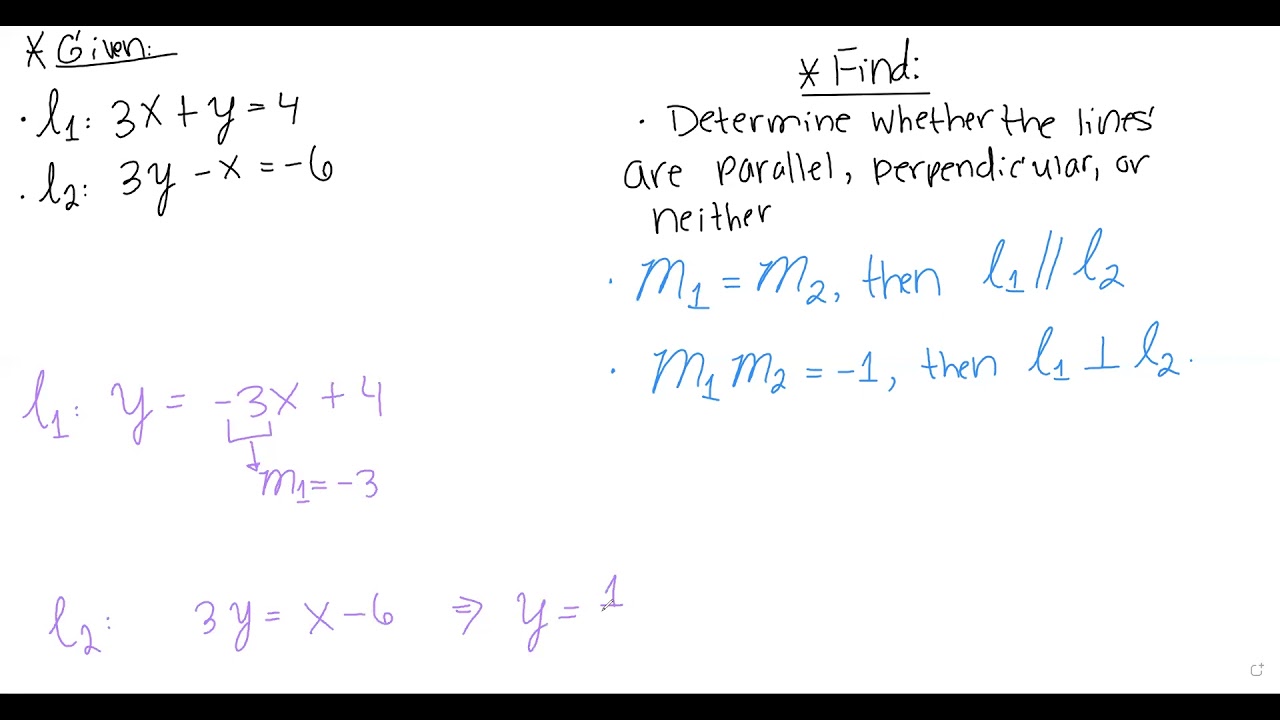 * Given:
· l1: 3x + y = 4
· l2: 3y - x = -6
* Find:
· Determine whether the lines
are parallel, perpendicular, or
neither
· m1 = m2, then l1 // l2
· m1 m2 = -1, then l1 ⊥ l2.
l1: y = -3x + 4
m1 = -3
l2: 3y = x - 6 ⇒ y = 1